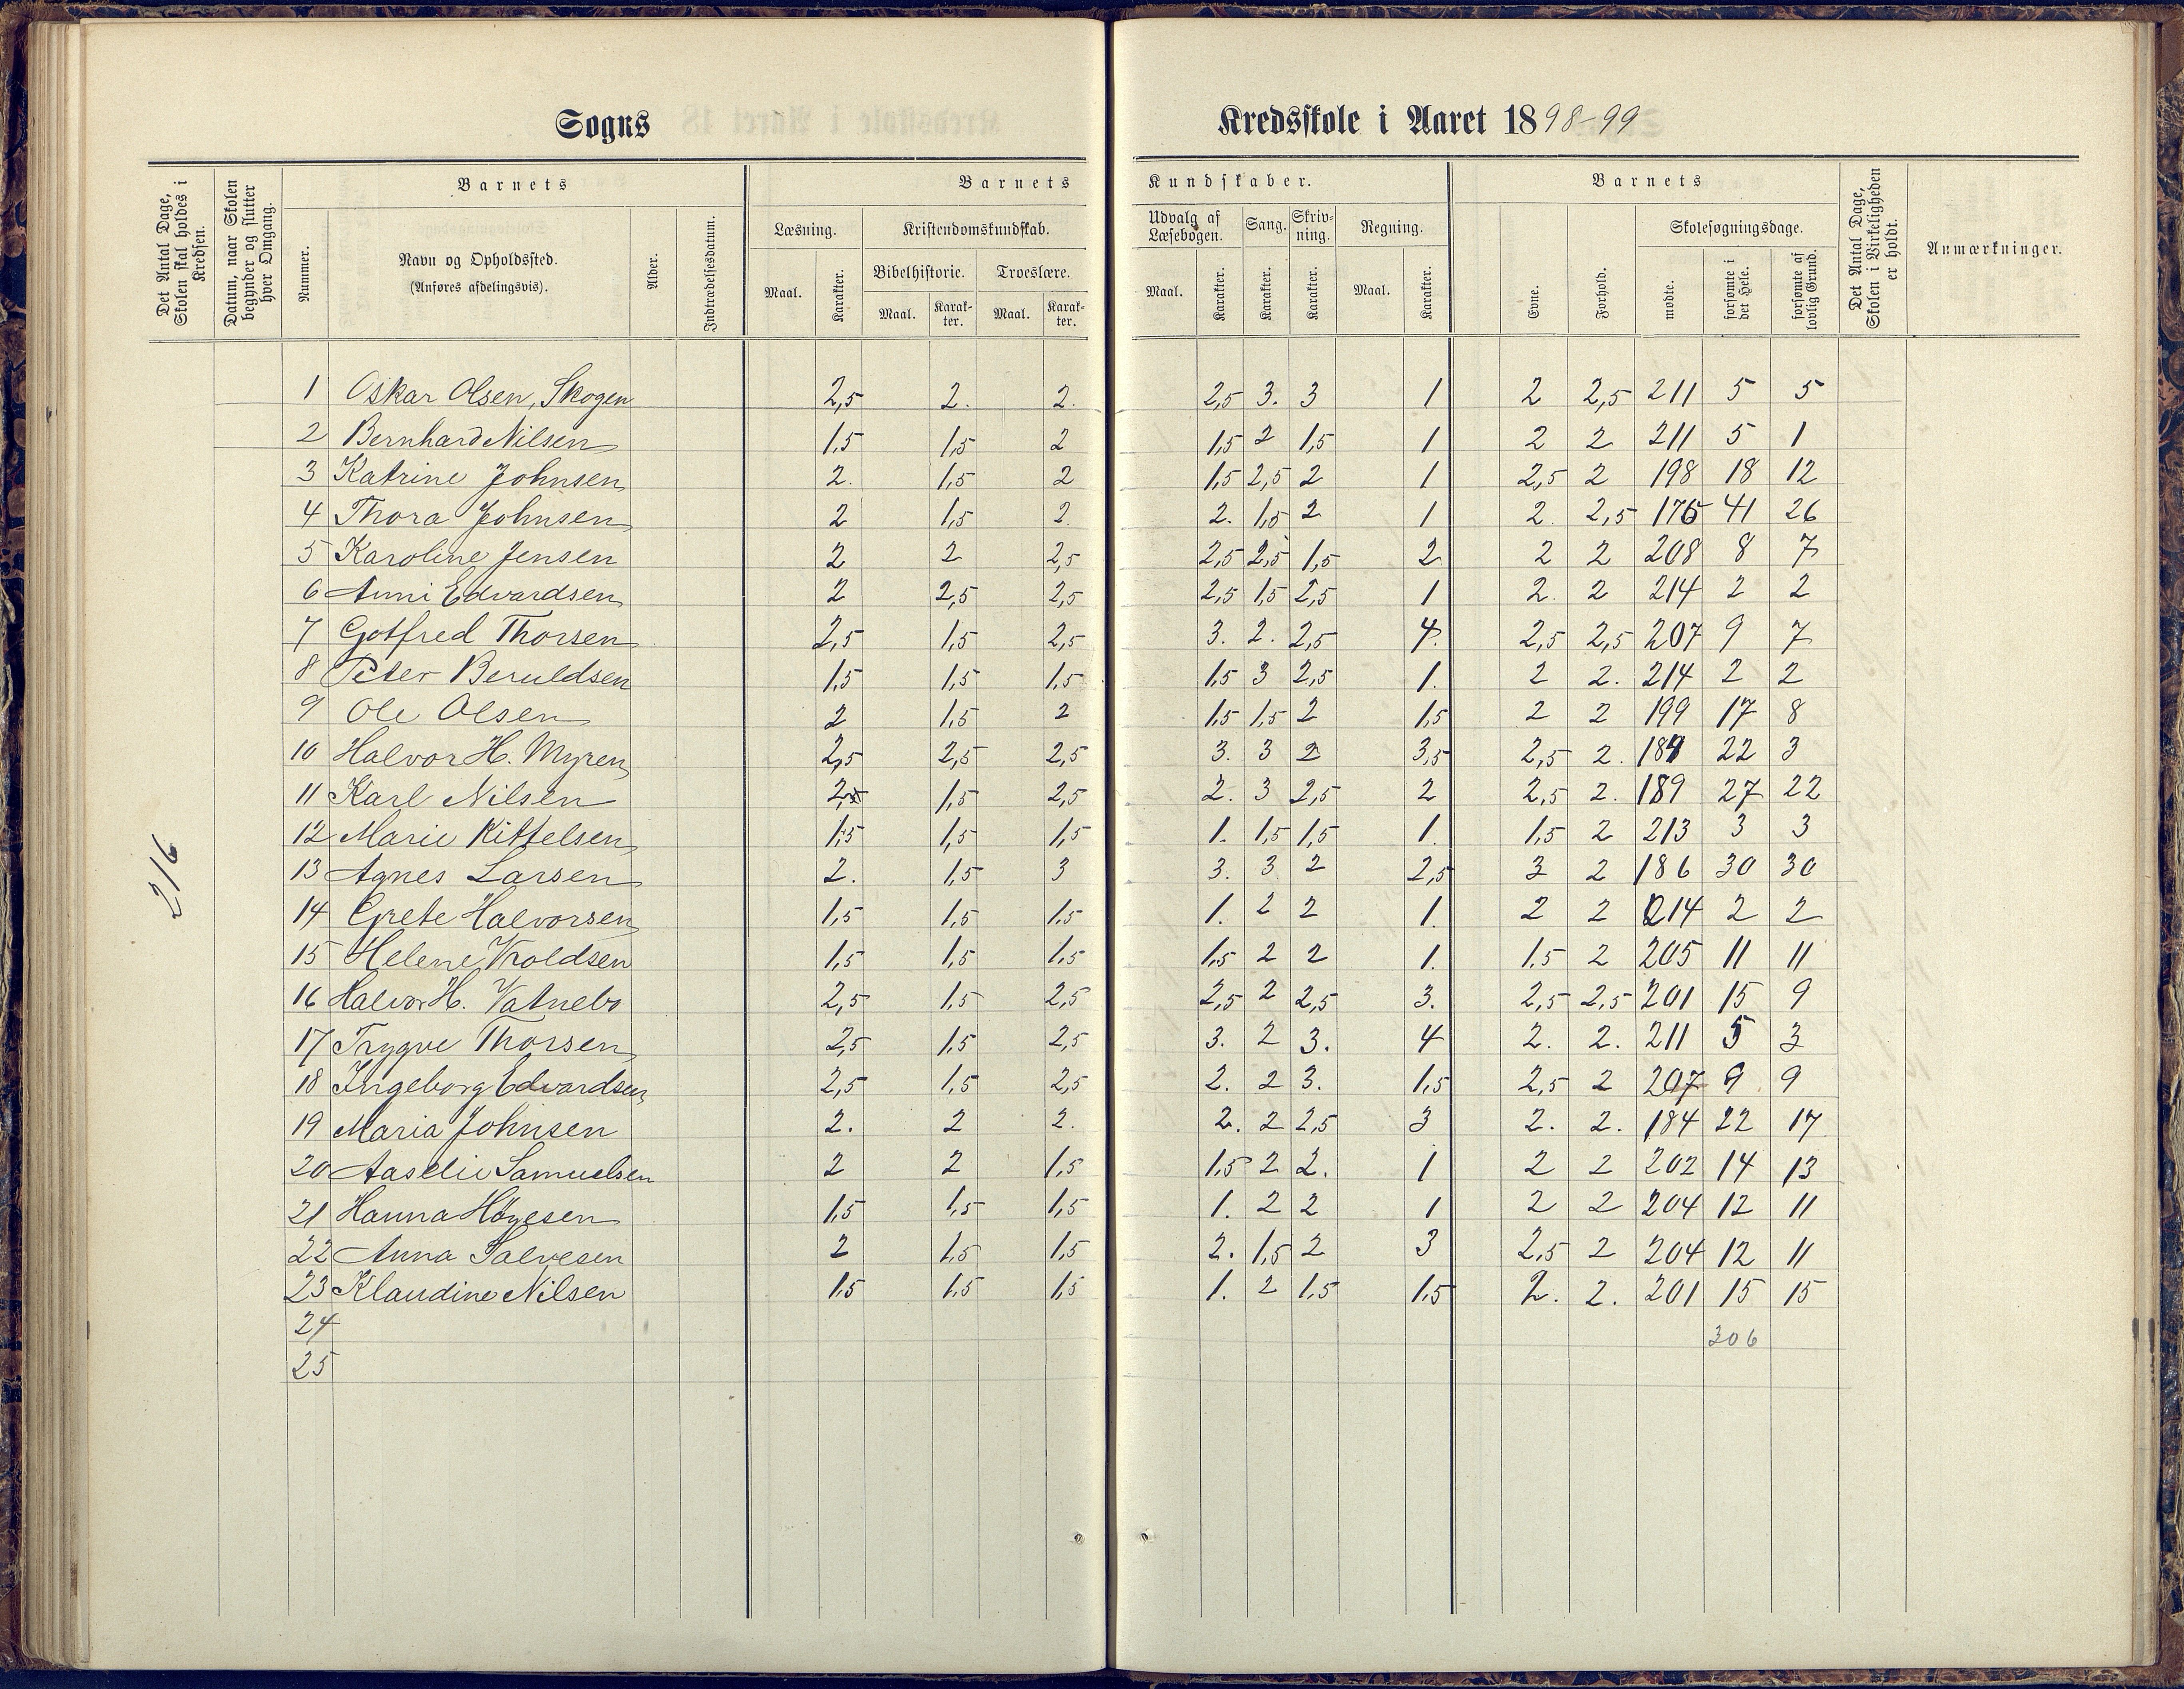 Sogns Kredsskole i Aaret 1898-99
Det Antal Dage, Skolen skal holdes i Kredsen.
Datum, naar Skolen begynder og slutter hver Omgang.
Barnets
Nummer.
Navn og Opholdssted.
(Anføres afdelingsvis).
Alder.
Indtrædelsesdatum.
Barnets Kundskaber.
Læsning.
Maal.
Karakter.
Kristendomskundskab.
Bibelhistorie.
Maal.
Karakter.
Troeslære.
Maal.
Karakter.
Udvalg af Læsebogen.
Maal.
Karakter.
Sang.
Karakter.
Skrivning.
Karakter.
Regning.
Maal.
Karakter.
Barnets
Evne.
Forhold.
Skolesøgningsdage.
mødte.
forsømte i det Hele.
forsømte af lovlig Grund.
Det Antal Dage, Skolen i Virkeligheden er holdt.
Anmærkninger.
216
1 Oskar Olsen, Skogen 2,5 2. 2. 2,5 3. 3 1 2 2,5 211 5 5
2 Bernhard Nilsen 1,5 1,5 2 1,5 2 1,5 1 2 2 211 5 1
3 Katrine Johnsen 2. 1,5 2 1,5 2,5 2 1 2,5 2 198 18 12
4 Thora Johnsen 2 1,5 2. 2. 1,5 2 1 2. 2,5 175 41 26
5 Karoline Jensen 2 2 2,5 2,5 2,5 1,5 2 2 2 208 8 7
6 Anni Edvardsen 2 2,5 2,5 2,5 1,5 2,5 1 2. 2 214 2 2
7 Gotfred Thorsen 2,5 1,5 2,5 3. 2. 2,5 4. 2,5 2,5 207 9 7
8 Peter Beruldsen 1,5 1,5 1,5 1,5 3 2,5 1. 2 2. 214 2 2
9 Ole Olsen 2 1,5 2 1,5 1,5 2 1,5 2 2 199 17 8
10 Halvor H. Myren 2,5 2,5 2,5 3. 3 2 3,5 2,5 2. 22 3
11 Karl Nilsen 1,5 2,5 2. 3 2,5 2 2,5 2. 189 27 22
12 Marie Kittelsen 1,5 1,5 1,5 1. 1,5 1,5 1. 1,5 2 213 3 3
13 Agnes Larsen 2. 1,5 3 3. 3 2 2,5 3 2 186 30 30
14 Grete Halvorsen 1,5 1,5 1,5 1. 2 2 1. 2 2 214 2 2
15 Helene Vroldsen 1,5 1,5 1,5 1,5 2 2 1. 1,5 2 205 11 11
16 Halvor H. Vatnebo 2,5 1,5 2,5 2,5 2 2,5 3. 2,5 2,5 201 15 9
17 Trygve Thorsen 2,5 1,5 2,5 3. 2 3. 4 2. 2. 211 5 3
18 Ingeborg Edvardsen 2,5 1,5 2,5 2. 2 3. 1,5 2,5 2 207 9 9
19 Maria Johnsen 2. 2 2. 2. 2 2,5 3 2. 2. 184 22 17
20 Aaselie Samuelsen 2 2 1,5 1,5 2 2. 1 2 2 202 14 13
21 Hanna Høgesen 1,5 1,5 1,5 1. 2 2 1 2 2 204 12 11
22 Anna Salvesen 2 1,5 1,5 2. 1,5 2 3 2,5 2 204 12 11
23 Klaudine Nilsen 1,5 1,5 1,5 1. 2 1,5 1,5 2. 2. 201 15 15
24 306
25